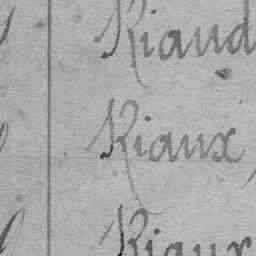 Riaud
Riaux
Riaux